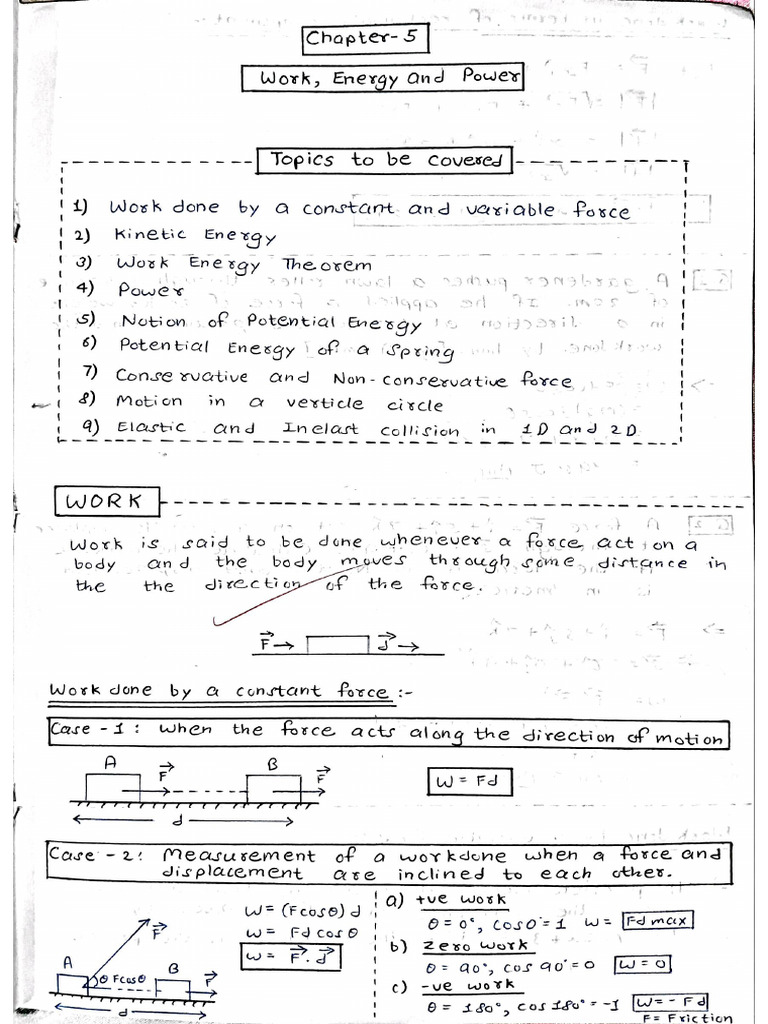 Chapter-5
Work, Energy and Power
Topics to be covered
1) Work done by a constant and variable force
2) Kinetic Energy
3) Work Energy Theorem
4) Power
5) Notion of Potential Energy
6) Potential Energy of a Spring
7) Conservative and Non-conservative force
8) Motion in a verticle circle
9) Elastic and Inelast collision in 1D and 2D
WORK
Work is said to be done whenever a force act on a
body and the body moves through some distance in
the the direction of the force.
F→ d→
Work done by a constant force :-
Case-1: When the force acts along the direction of motion
A F B F
W = Fd
d
Case-2: Measurement of a workdone when a force and
displacement are inclined to each other.
F
A θ Fcosθ B F
d
W = (Fcosθ) d
W = Fd cosθ
W = F⃗ . d⃗
a) +ve work
θ = 0°, cos0° = 1 W = Fd max
b) zero work
θ = 90°, cos 90° = 0 W = 0
c) -ve work
θ = 180°, cos 180° = -1 W = - Fd
F = Friction